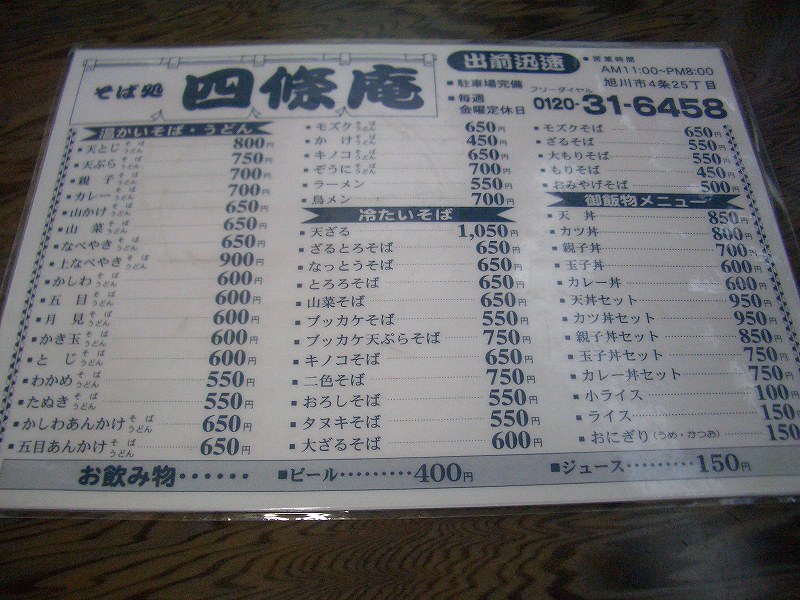 そば処 四條庵
出前迅速
■営業時間
AM11:00~PM8:00
■駐車場完備
旭川市4条25丁目
■毎週
金曜定休日
フリーダイヤル
0120-31-6458
温かいそば・うどん
■天とじそばうどん 800円
■天ぷらそばうどん 750円
■親子そばうどん 700円
■カレーそばうどん 700円
■山かけそばうどん 650円
■山菜そばうどん 650円
■なべやきそばうどん 650円
■上なべやきそばうどん 900円
■かしわそばうどん 600円
■五目そばうどん 600円
■月見そばうどん 600円
■かき玉そばうどん 600円
■とじそばうどん 600円
■わかめそばうどん 550円
■たぬきそばうどん 550円
■かしわあんかけそばうどん 650円
■五目あんかけそばうどん 650円
■モズクそばうどん 650円
■かけそばうどん 450円
■キノコそばうどん 650円
■ぞうにそばうどん 700円
■ラーメン 550円
■鳥メン 700円
冷たいそば
■天ざる 1,050円
■ざるとろそば 650円
■なっとうそば 650円
■とろろそば 650円
■山菜そば 650円
■ブッカケそば 550円
■ブッカケ天ぷらそば 750円
■キノコそば 650円
■二色そば 750円
■おろしそば 550円
■タヌキそば 550円
■大ざるそば 600円
■モズクそば 650円
■ざるそば 550円
■大もりそば 550円
■もりそば 450円
■おみやげそば 500円
御飯物メニュー
■天丼 850円
■カツ丼 800円
■親子丼 700円
■玉子丼 600円
■カレー丼 600円
■天丼セット 950円
■カツ丼セット 950円
■親子丼セット 850円
■玉子丼セット 750円
■カレー丼セット 750円
■小ライス 100円
■ライス 150円
■おにぎり(うめ・かつお) 150
お飲み物・・・・・・ ■ビール・・・・・・・・・400円 ■ジュース・・・・・・・・・150円